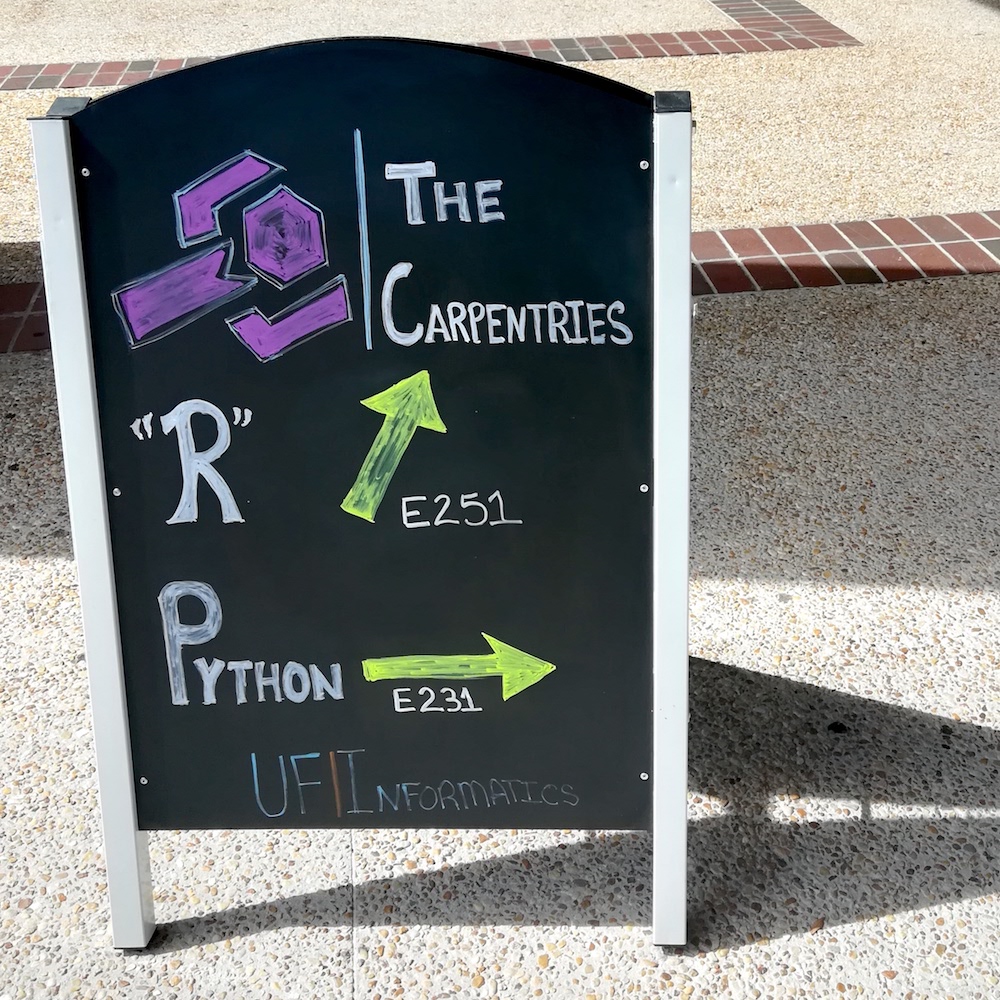 THE
CARPENTRIES
"R"
E251
PYTHON
E231
UF|INFORMATICS